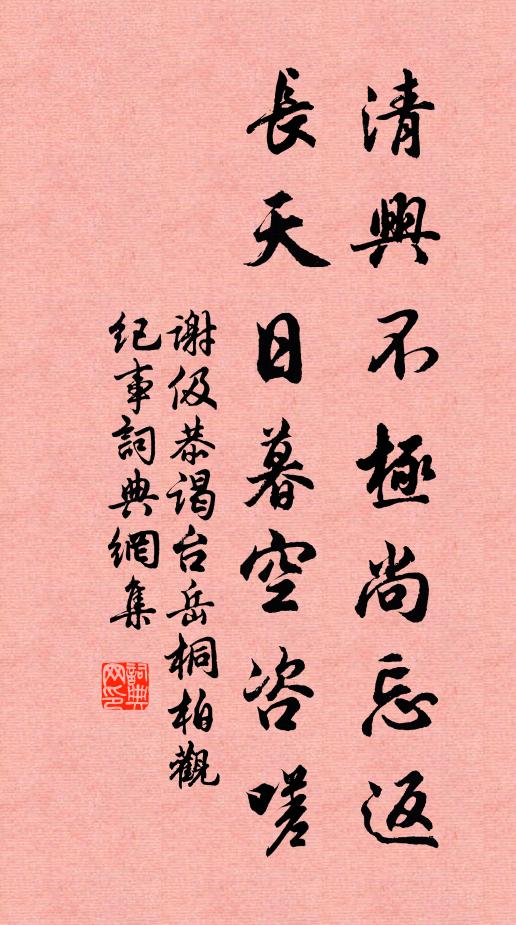 清興不極尚忘返
長天日暮空咨嗟
謝伋恭謁台岳桐柏觀
紀事詞典網集
詞典
网印